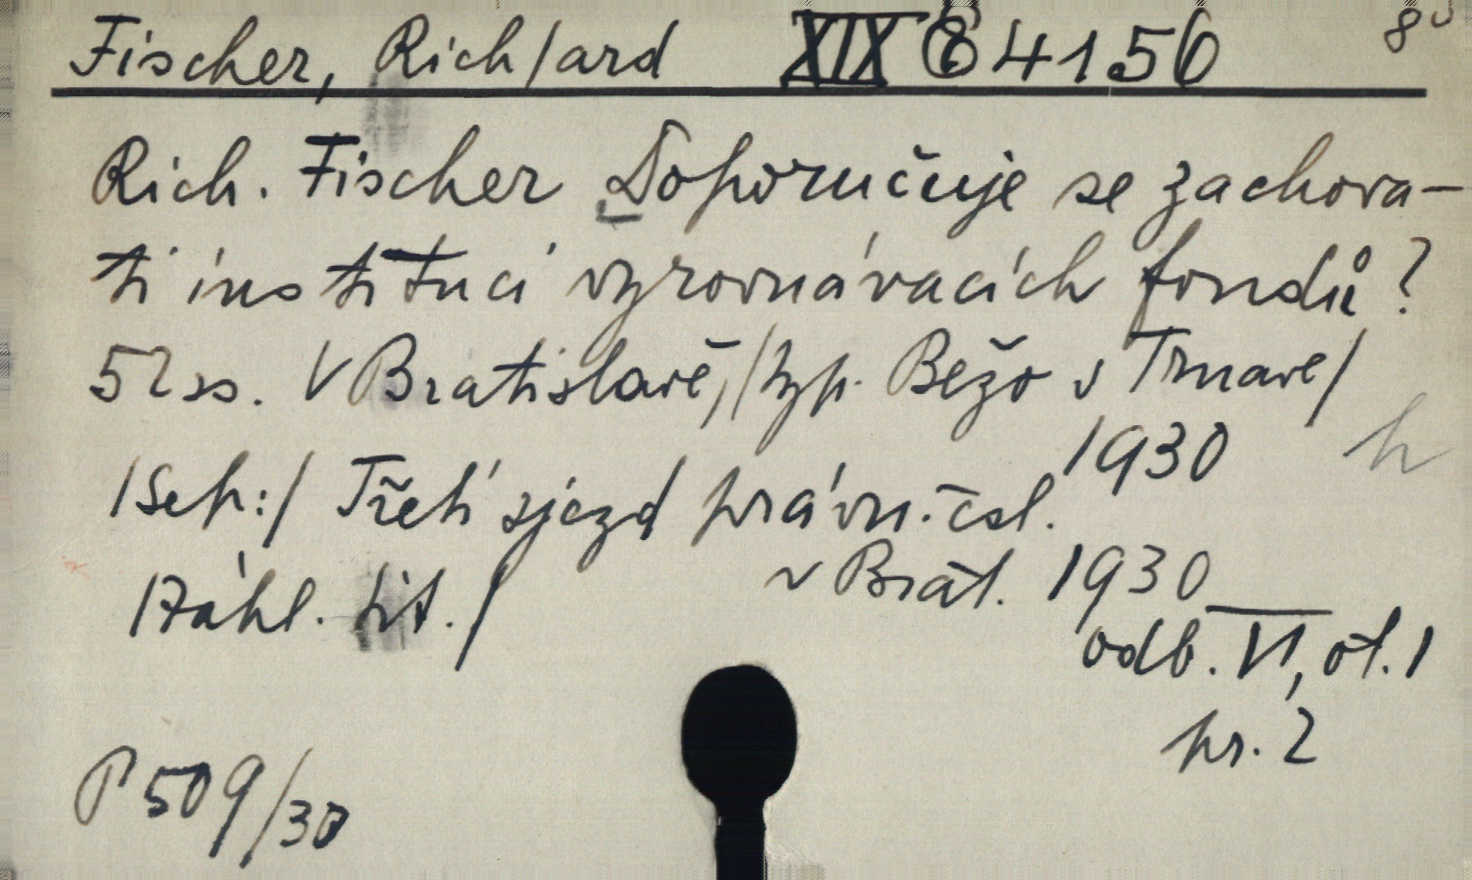 Fischer, Rich/ard XIX E 4156 8°
Rich. Fischer Doporučuje se zachova-
ti instituci vyrovnávacích fondů?
52 ss. V Bratislavě, /typ. Bežo v Trnavě/
1930
h
/Sep:/ Třetí sjezd právn. čsl.
v Brat. 1930
/Záhl. tit./
odb. VI, ot. 1
pr. 2
P 509/30